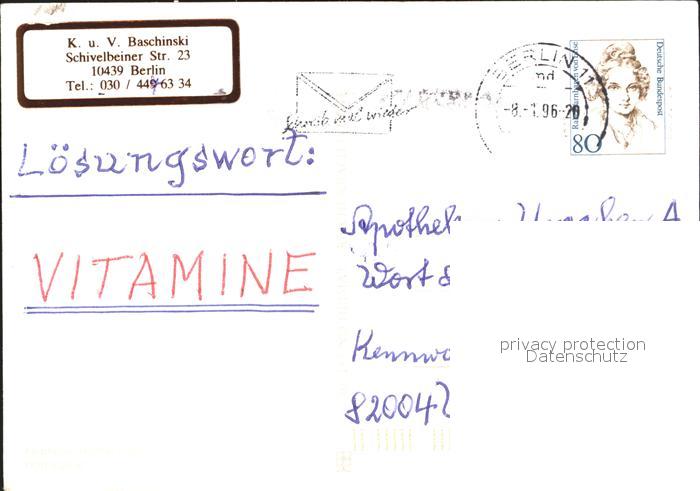 K. u. V. Baschinski
Schivelbeiner Str. 23
10439 Berlin
Tel.: 030 / 449 63 34
Schreib mal wieder
BERLIN 11
md
-8.-1.96-20
Deutsche Bundespost
80
Lösungswort:
VITAMINE
Apothek
Wort &
Kennwo
82004
privacy protection
Datenschutz